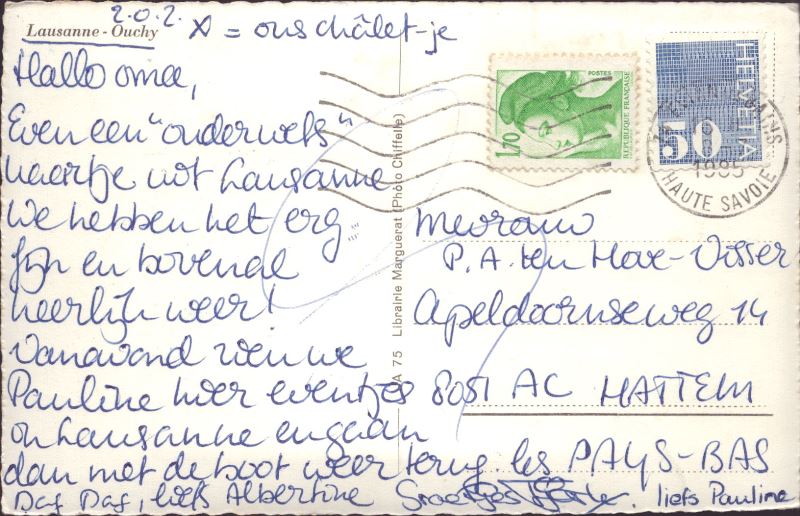 Lausanne - Ouchy
x = ons châlet-je
Hallo oma,
Even een "onderwets"
kaartje uit Lausanne
We hebben het erg
fijn en bovenal
heerlijk weer!
Vanavond zien we
Pauline hier eventjes
in Lausanne en gaan
dan met de boot weer terug.
Dag Dag, liefs Albertine
Groetjes
liefs Pauline
VA 75 Librairie Marguerat (Photo Chiffelle)
POSTES
1,70
REPUBLIQUE FRANÇAISE
HELVETIA
50
BAINS
1985
HAUTE SAVOIE
Mevrouw
P.A. ten Hove-Visser
Apeldoornseweg 14
8051 AC HATTEM
les PAYS-BAS